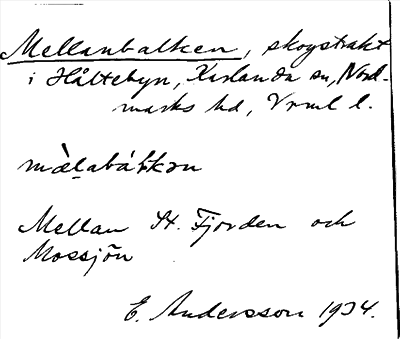 Mellanbalken, skogstrakt
i Håltebyn, Karlanda sn, Nord-
marks hd, Vrml l.
mæ̀labáłkən
Mellan St. Fjorden och
Mossjön
E. Andersson 1934.